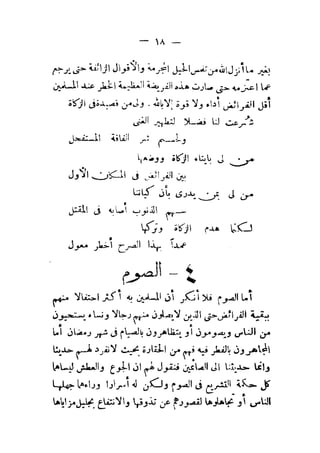 — ١٨ —
بغير ما أنزل الله من تلمس الحيل المجرمة والأقوال الزائفة حتى يرجع
عما اعتزمه حتى صارت هذه الفريضة العظيمة الخطر عند المسلمين
أقل الفرائض أداء ولا قوة إلا بالله . ومن لى فصدقة الزكاة
شرعت لنا فضلا لتطهير الغنى
ولحسم شر الفاقة المستفحل
من لى بايتاء الزكاة ووضعها
بين الفرائض فى المكان الأول
بل من لى بمن يدرى بأن كياننا
سهم الذنوب أصابه فى المقتل
لكنما هدم الزكاة وتركها
عمداً بهذا الصرح أخطر معول
٤ – الصوم
أما الصوم فلا أنكر أن المسلمين به أكثر احتفالا منهم
ببقية الفرائض حتى الذين لا يصلون منهم رجالا ونساء يستحيون
من الناس ويصومون أو يتظاهرون بالصيام فى شهر رمضان أما
المجاهرون بالفطر فيه فهم من الحقارة بحيث لا نفرد لهم حديثا
وانما حديثنا الى الصائمين فنقول لهم ان الجوع والعطش ليساهما
كل حكمة التشريع فى الصوم ولكن له أسرارا وراءهما جهلها
الناس أو تجاهلوها لقصورهم عن تذوقها والانتفاع بجليل مزاياها